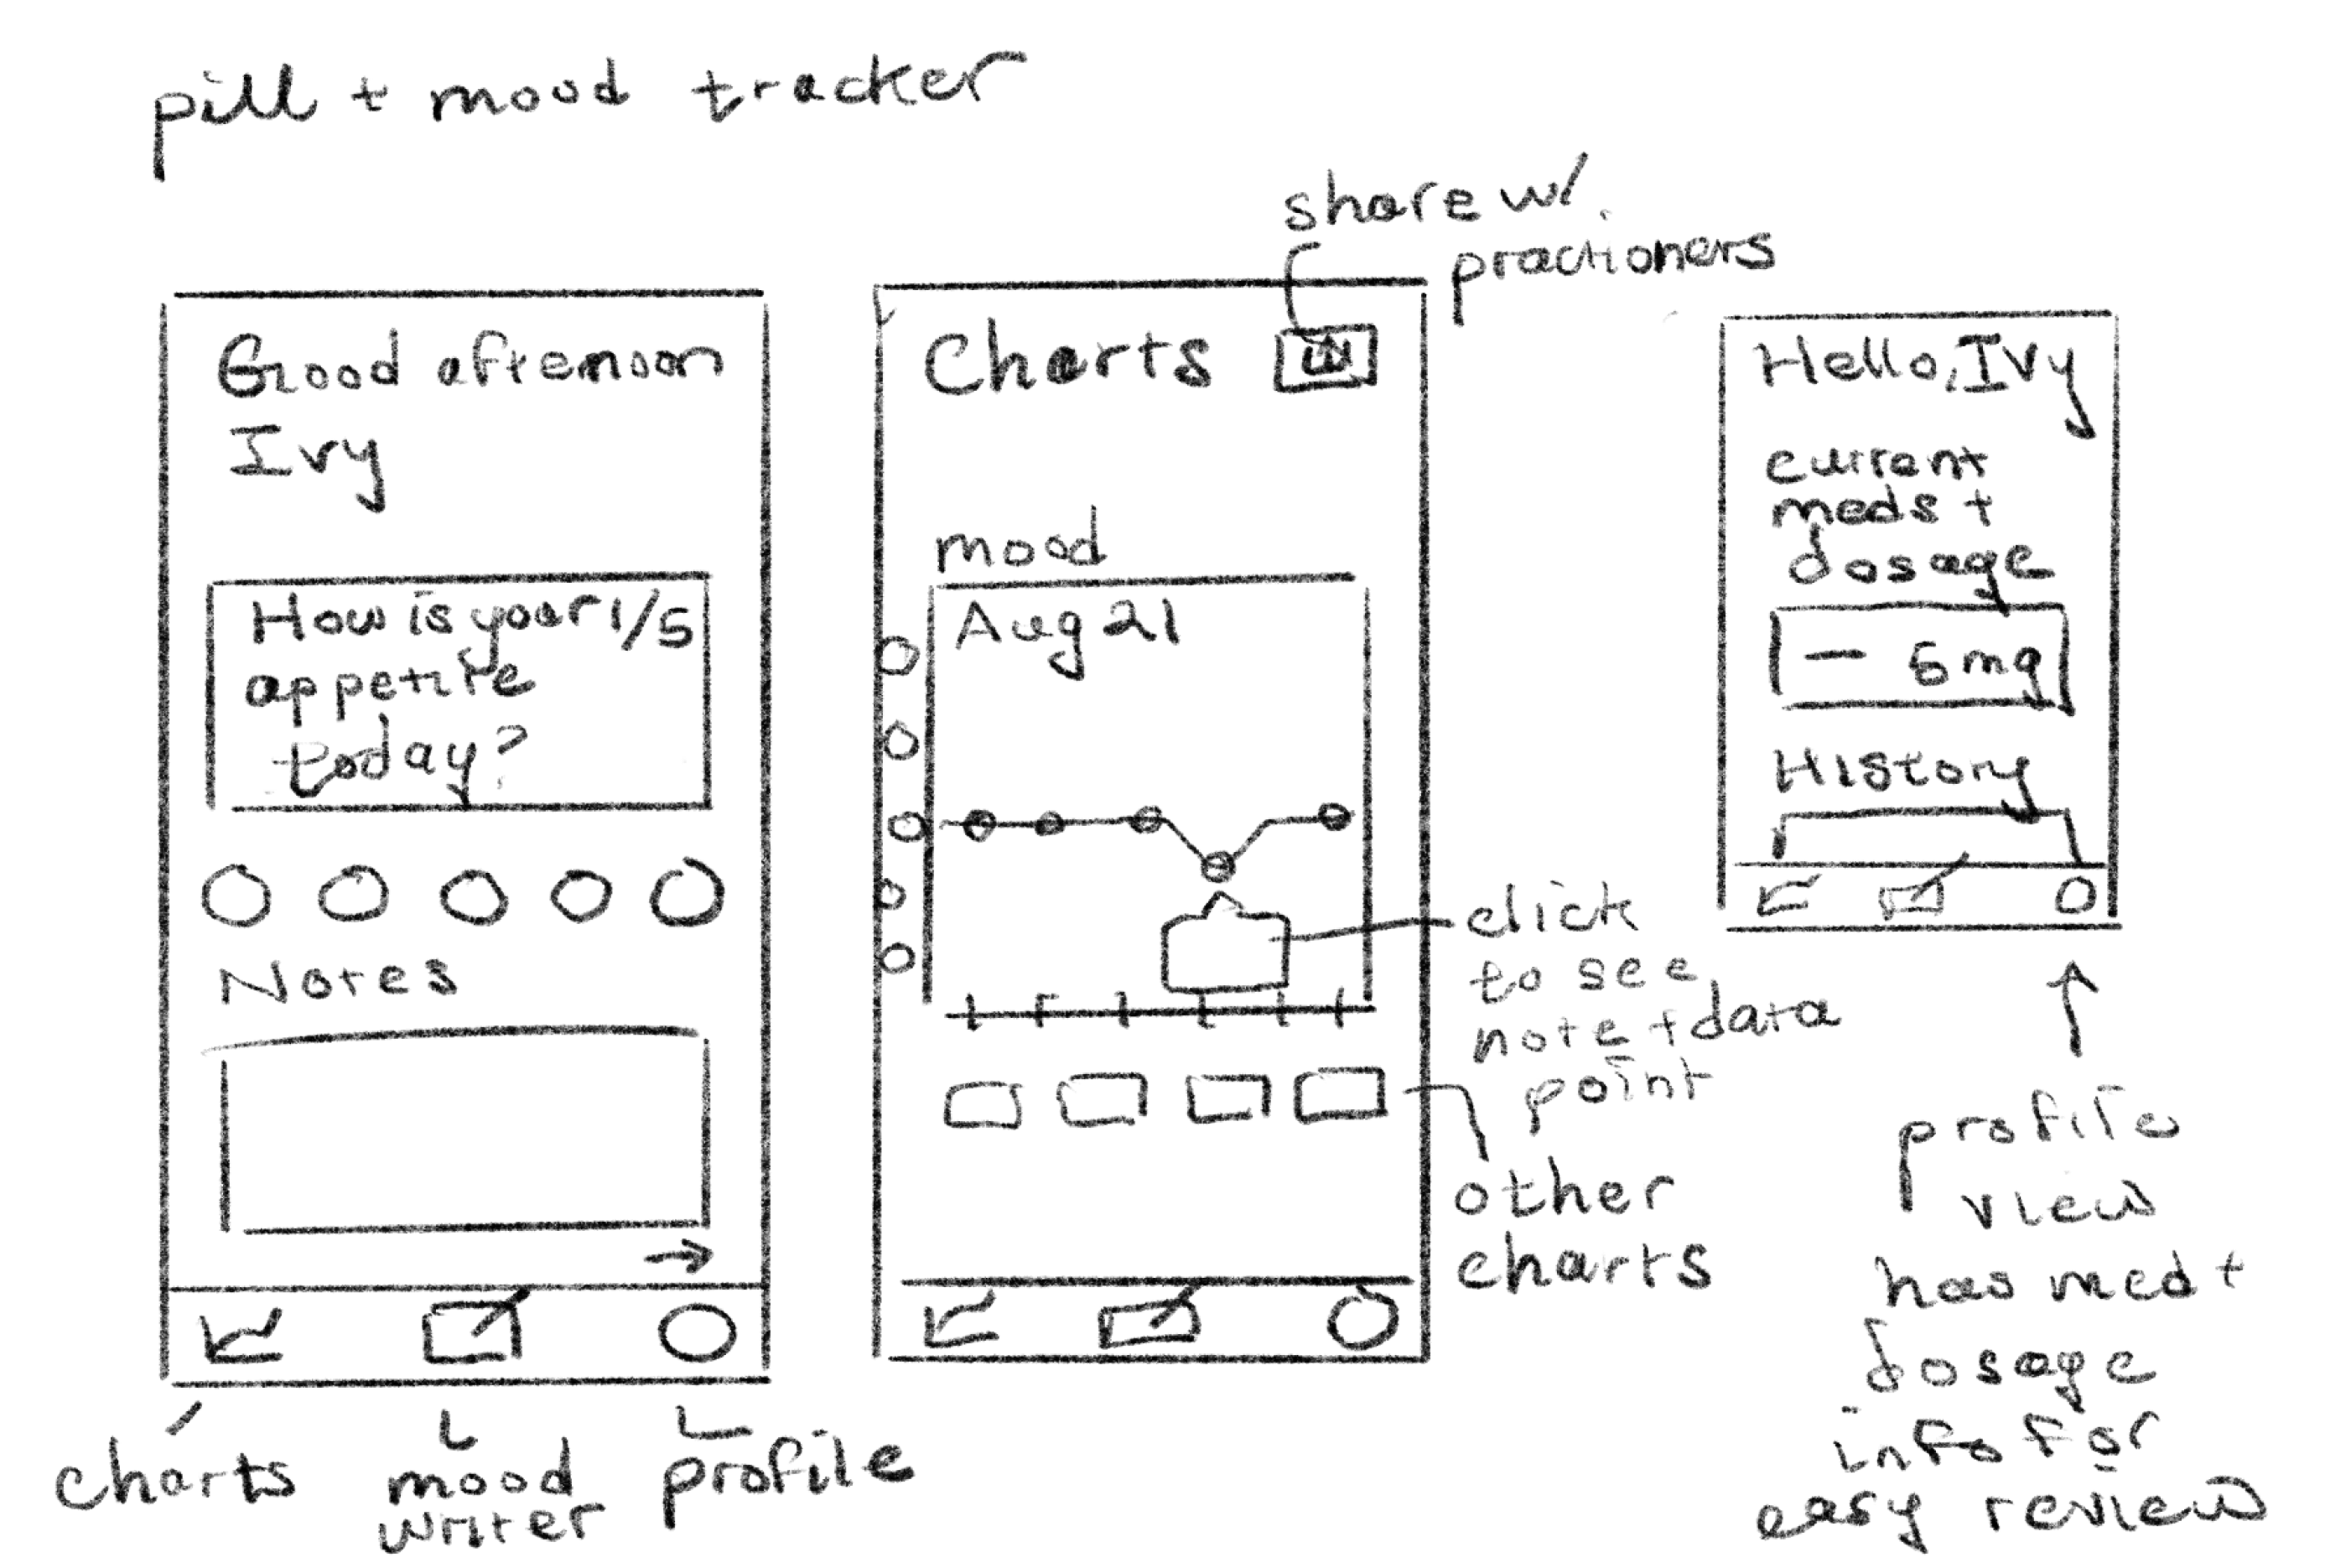 pill + mood tracker
share w/
practioners
Good afternoon
Ivy
How is your 1/5
appetite
today?
Notes
charts
mood
writer
profile
Charts
mood
Aug 21
click
to see
note + data
point
other
charts
Hello, Ivy
current
meds +
dosage
— 5mg
History
profile
view
has med +
dosage
info for
easy review